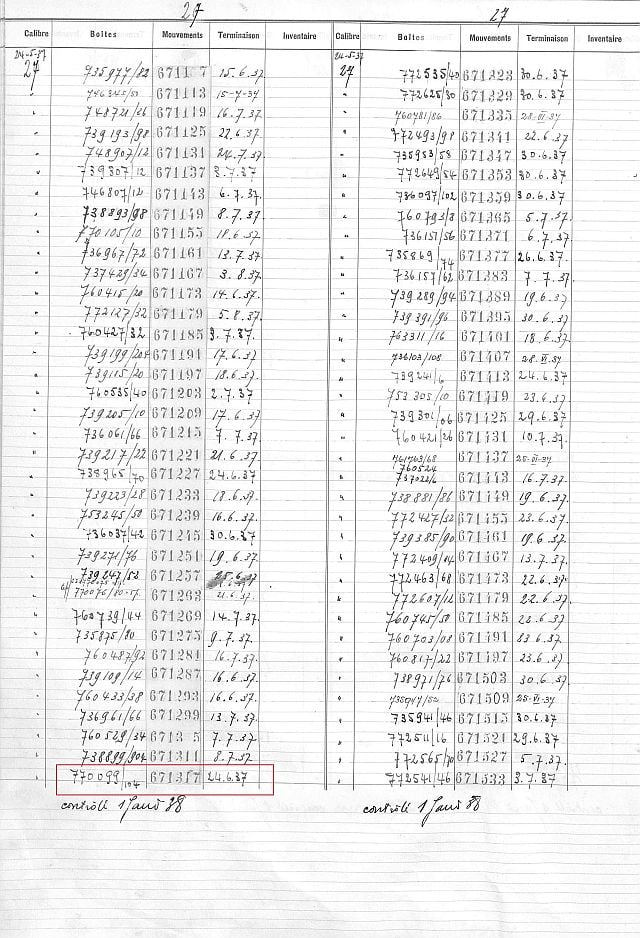 27
27
Calibre Boîtes Mouvements Terminaison Inventaire
24-5-37
27 735977/82 15.6.37
" 746345/50 671113 15-7-37
" 748721/26 671119 16.7.37
" 739193/98 671125 22.6.37
" 748907/12 671131 24.7.37
" 739307/12 671137 3.7.37
" 746807/12 671143 6.7.37
" 738893/98 671149 8.7.37
" 770105/10 671155 18.6.37
" 736967/72 671161 13.7.37
" 737429/34 671167 3.8.37
" 760415/20 671173 14.6.37
" 772127/32 671179 5.8.37
" 760427/32 671185 3.7.37
" 739199/204 671191 17.6.37
" 739115/20 671197 18.6.37
" 760535/40 671203 2.7.37
" 739205/10 671209 17.6.37
" 736061/66 671215 7.7.37
" 739217/22 671221 21.6.37
" 738965/70 671227 24.6.37
" 739223/28 671233 18.6.37
" 753245/50 671239 16.6.37
" 736037/42 671245 30.6.37
" 739271/76 671251 19.6.37
" 739247/52 671257
" 671263 21.6.37
" 760739/44 671269 14.7.37
" 735875/80 671275 9.7.37
" 760487/92 671281 16.7.37
" 739109/14 671287 16.6.37
" 760433/38 671293 16.6.37
" 736961/66 671299 13.7.37
" 760529/34 6713 5 7.7.37
" 738899/904 671311 8.7.37
" 770099/104 671317 24.6.37
contrôlé 1 Janv 38
Calibre Boîtes Mouvements Terminaison Inventaire
24-5-37
27 772535/40 671323 30.6.37
" 772625/30 671329 30.6.37
" 760781/86 671335 28-VI-37
" 772493/98 671341 22.6.37
" 735953/58 671347 30.6.37
" 772649/54 671353 30.6.37
" 736097/102 671359 30.6.37
" 760793/8 671365 5.7.37
" 736151/56 671371 6.7.37
" 735869/74 671377 26.6.37
" 736157/62 671383 7.7.37
" 739289/94 671389 19.6.37
" 739391/96 671395 30.6.37
" 763311/16 671401 18.6.37
" 736103/108 671407 28.VI.37
" 739241/6 671413 24.6.37
" 753305/10 671419 23.6.37
" 739301/06 671425 29.6.37
" 760421/26 671431 10.7.37
" 761763/68 671437 25-VI-37
" 760524 737022/6 671443 16.7.37
" 738881/86 671449 19.6.37
" 772427/32 671455 23.6.37
" 739385/90 671461 19.6.37
" 772409/14 671467 13.7.37
" 772463/68 671473 22.6.37
" 772607/12 671479 22.6.37
" 760745/50 671485 22.6.37
" 760703/08 671491 23.6.37
" 760817/22 671497 23.6.37
" 738971/76 671503 30.6.37
" 738947/52 671509 25-VI-37
" 735941/46 671515 30.6.37
" 772511/16 671521 29.6.37
" 772565/70 671527 5.7.37
" 772541/46 671533 3.7.37
contrôlé 1 Janv 38